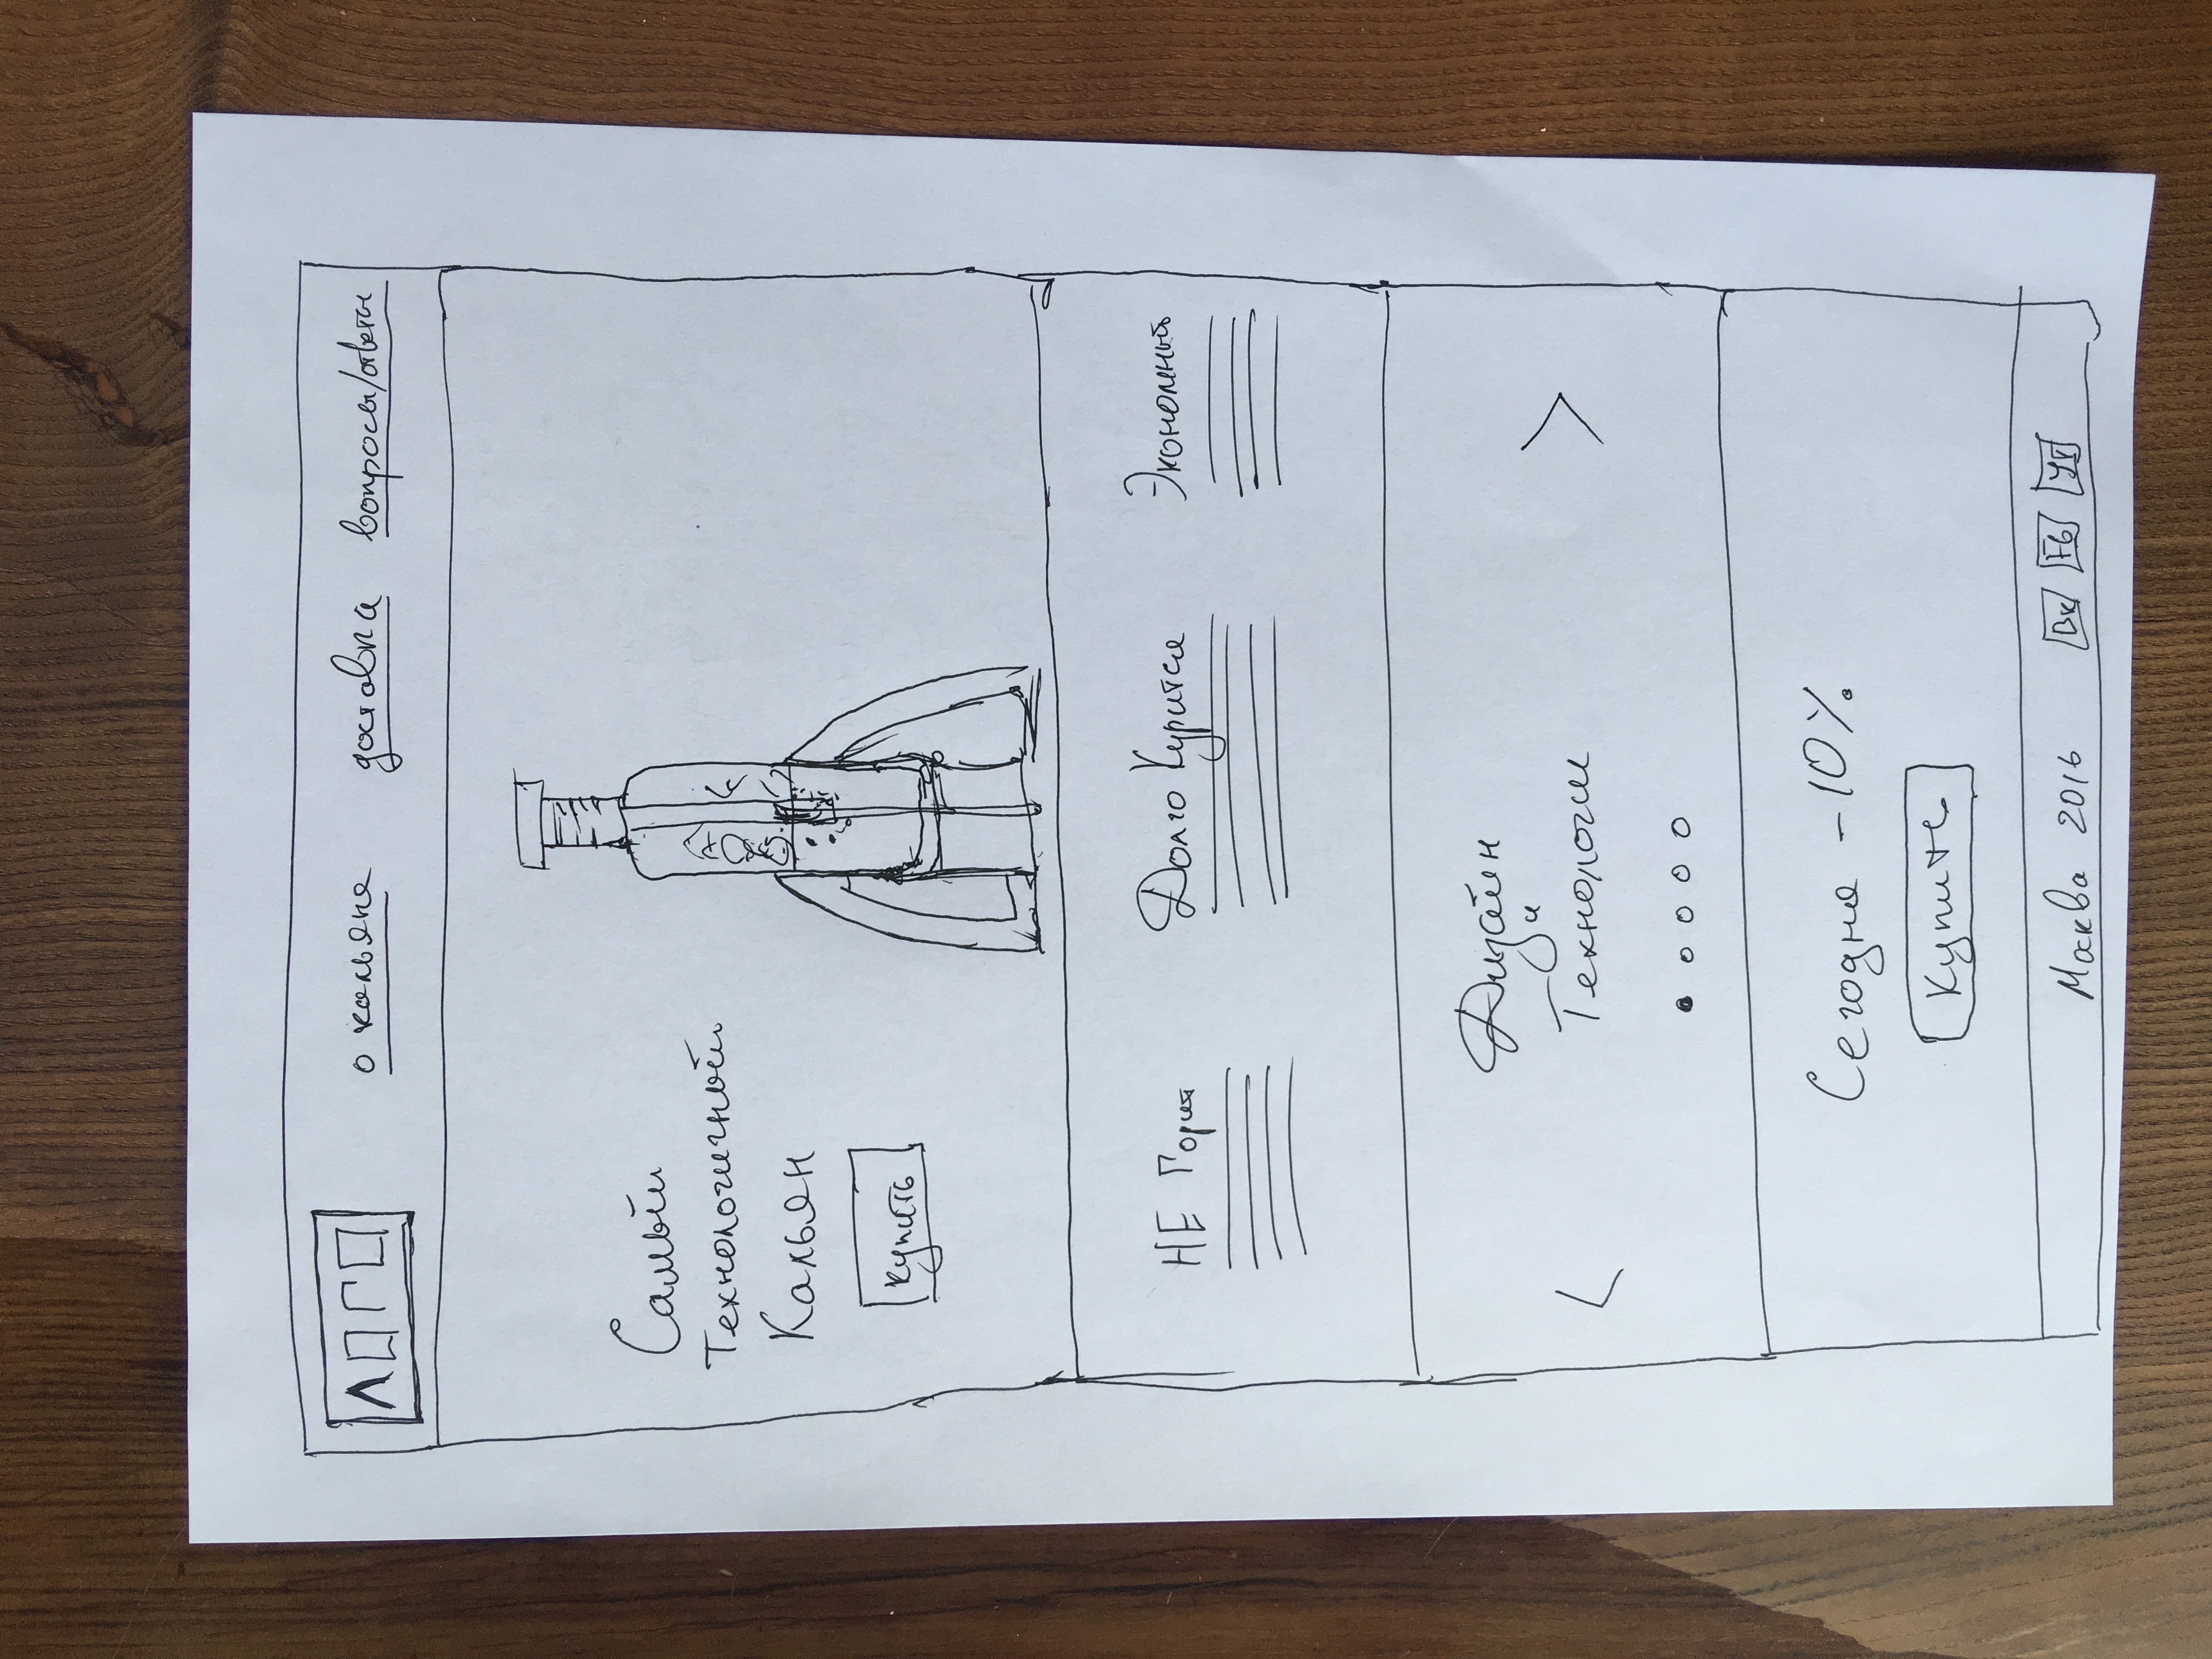 ЛОГО
о кальяне доставка вопросы/ответы
Самый
Технологичный
Кальян
купить
НЕ Горит Долго Курится Экономный
Дизайн
и
Технологии
Сегодня -10%
Купить
Москва 2016 Вк Fb YT